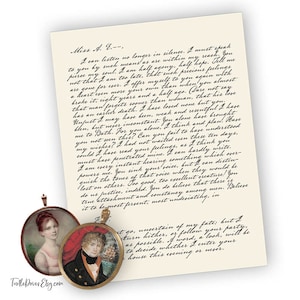 Miss A. E—,
I can listen no longer in silence. I must speak
to you by such means as are within my reach. You
pierce my soul. I am half agony, half hope. Tell me
not that I am too late, that such precious feelings
are gone for ever. I offer myself to you again with
a heart even more your own than when you almost
broke it, eight years and a half ago. Dare not say
that man forgets sooner than woman, that his love
has an earlier death. I have loved none but you.
Unjust I may have been, weak and resentful I have
been, but never inconstant. You alone have brought
me to Bath. For you alone, I think and plan. Have
you not seen this? Can you fail to have understood
my wishes? I had not waited even these ten days,
could I have read your feelings, as I think you
must have penetrated mine. I can hardly write.
I am every instant hearing something which over-
powers me. You sink your voice, but I can distin-
guish the tones of that voice when they would be
lost on others. Too good, too excellent creature! You
do us justice, indeed. You do believe that there is
true attachment and constancy among men. Believe
it to be most fervent, most undeviating, in
go, uncertain of my fate; but I
return hither, or follow your party,
as possible. A word, a look, will be
to decide whether I enter your
house this evening or never.
TurtleDoves.Etsy.com